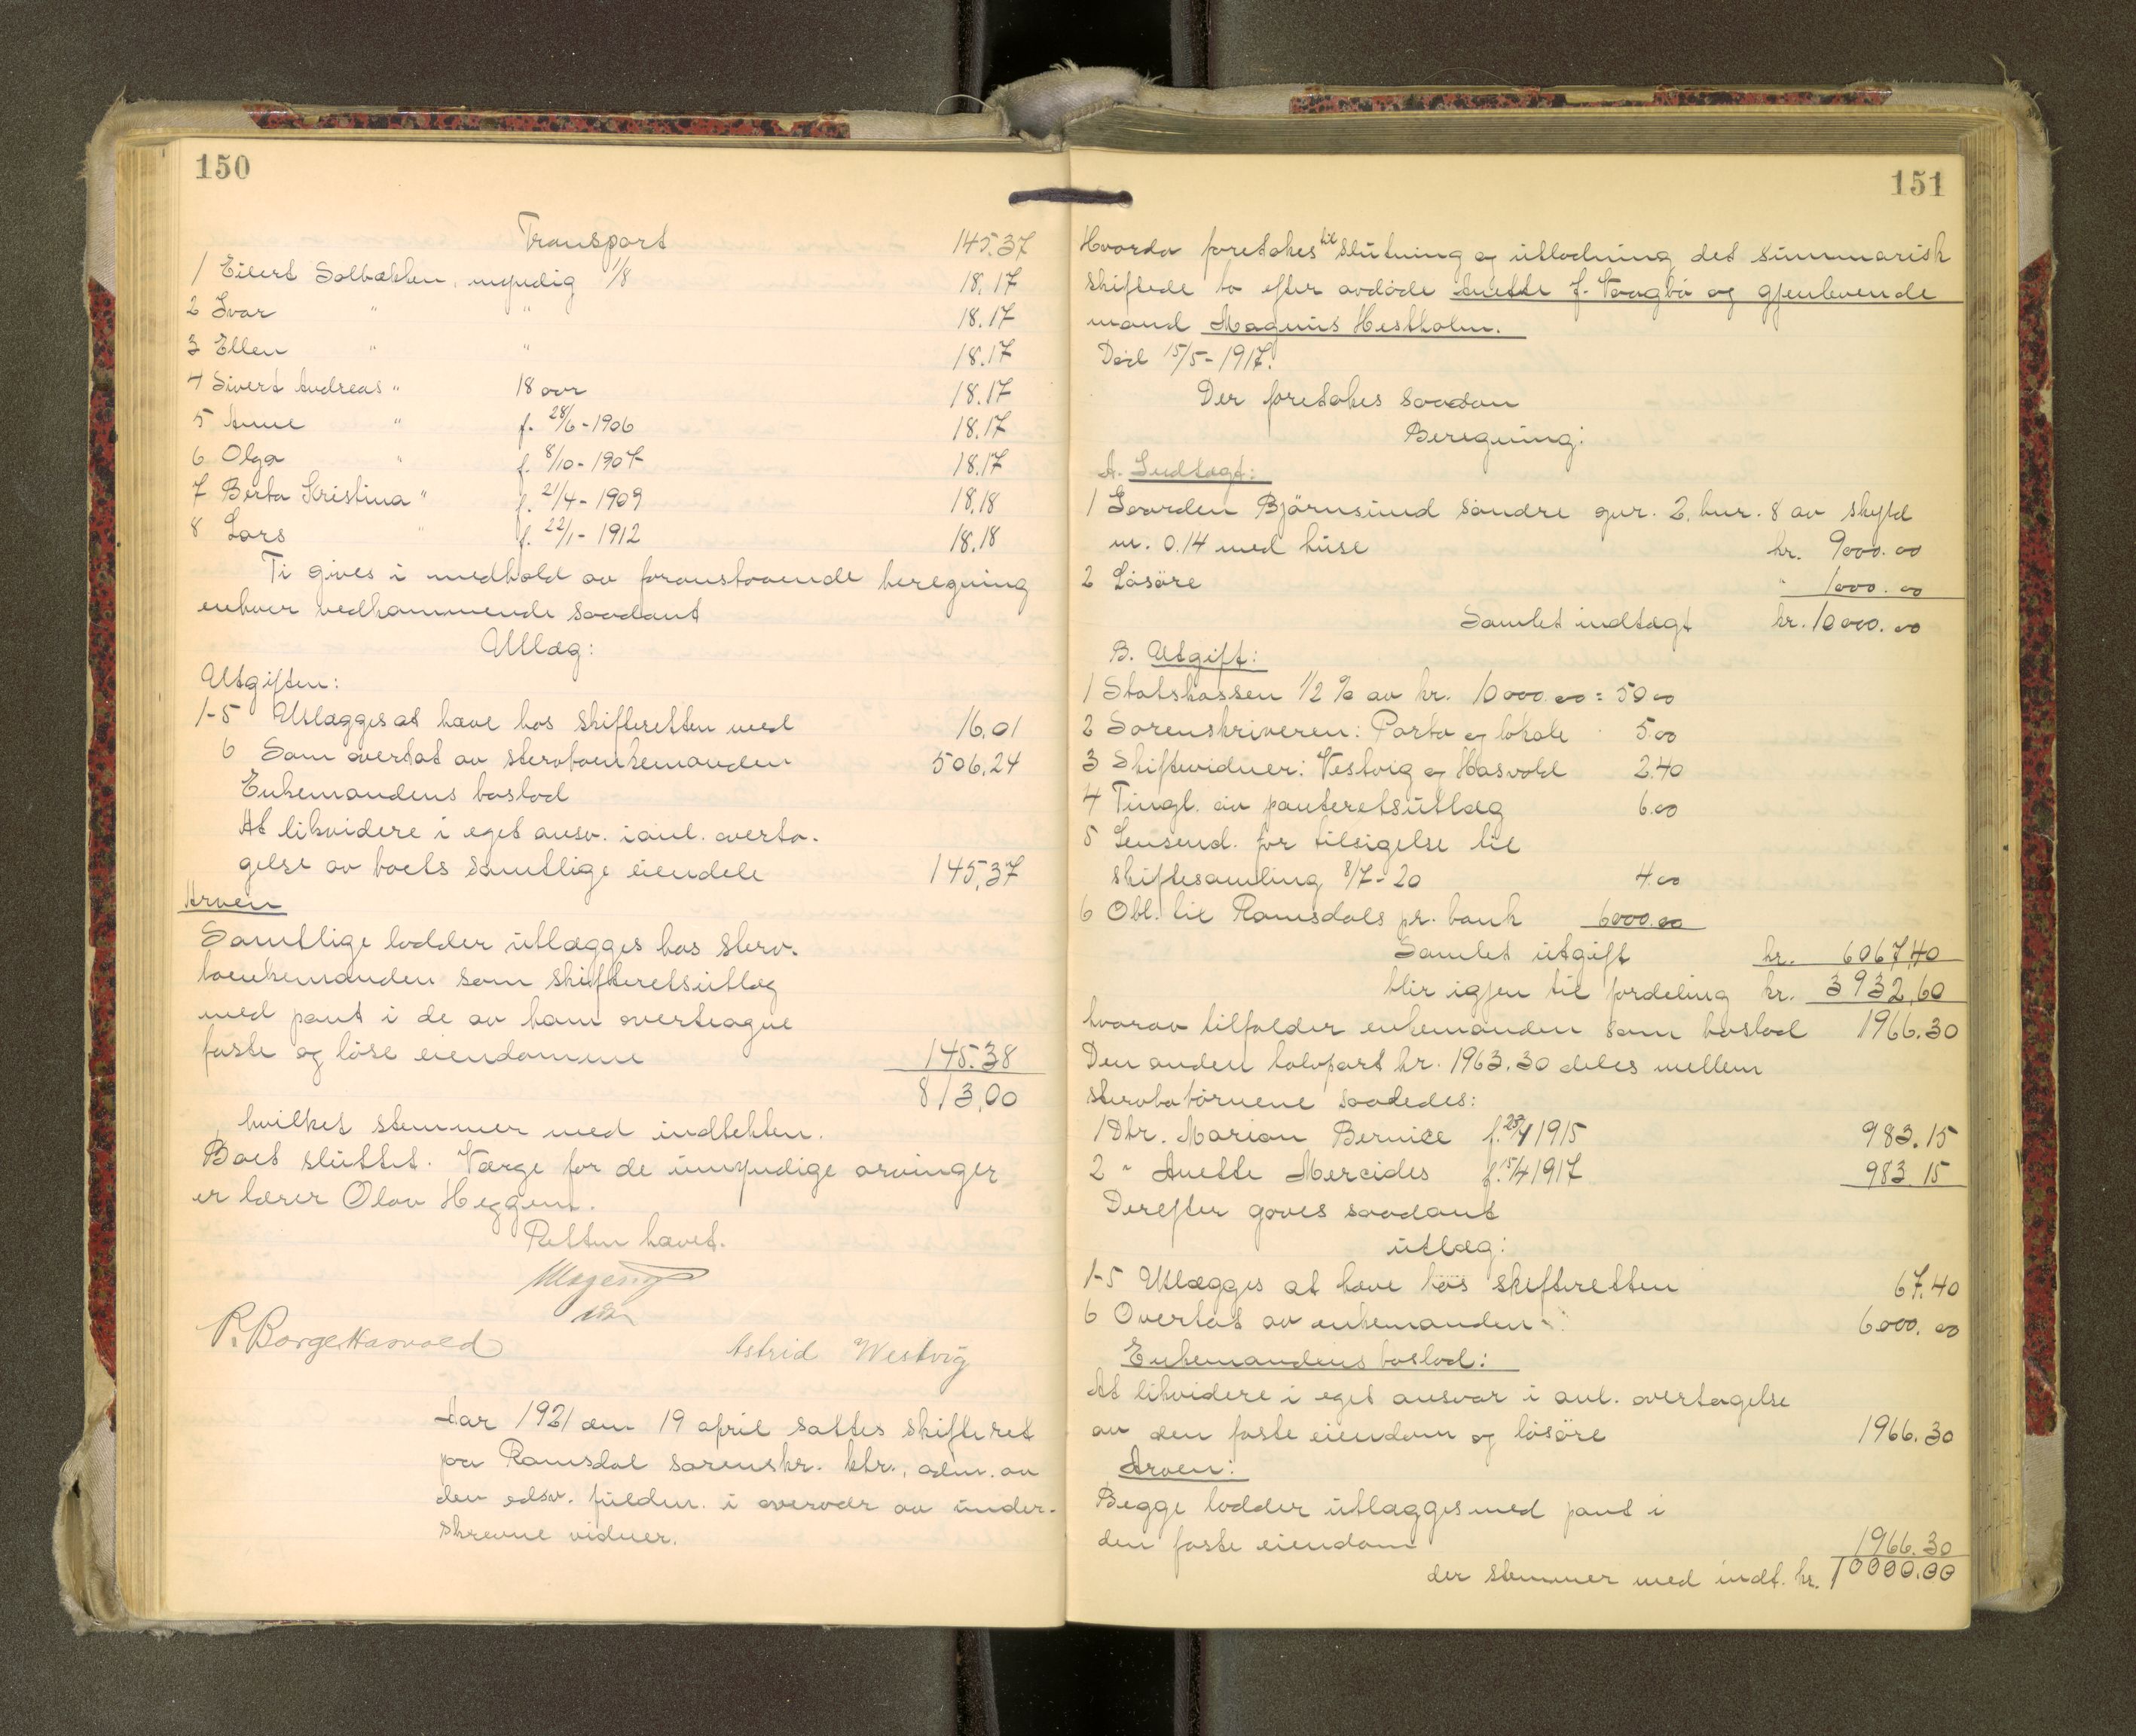 150
Transport 145.37
1 Eilert Solbakken, myndig 1/8 18.17
2 Ivar " " 18.17
3 Ellen " " 18.17
4 Sivert Andreas " 18 aar 18.17
5 Anne " f. 28/6-1906 18.17
6 Olga " f. 8/10-1907 18.17
7 Berta Kristina " f. 21/4-1909 18.18
8 Lars " f. 22/1-1912 18.18
Ti gives i medhold av foranstaaende beregning
enhver vedkommende saadant
Utlæg:
Utgiften:
1-5 Utlægges at hæve hos skifteretten med 16.01
6 Som overtat av stervboenkemanden 506,24
Enkemandens boslod
At likvidere i eget ansv. i anl. overta-
gelse av boets samtlige eiendele 145,37
Arven
Samtlige lodder utlægges hos sterv-
boenkemanden som skifteretsutlæg
med pant i de av ham overtagne
faste og løse eiendomme 145.38
813,00
hvilket stemmer med indtekten.
Boet sluttet. Værge for de umyndige arvinger
er lærer Olav Heggem.
Retten hævet.
P. Borge Hasvold
Astrid Westvig
Aar 1921 den 19 april sattes skifteret
paa Romsdal sorenskr. ktr., adm. av
den edsv. fuldm. i overvær av under-
skrevne vidner.
151
Hvorda foretokes til slutning og utlodning det summarisk
skiftede bo efter avdøde Anette f. Vaagbø og gjenlevende
mand Magnus Hestholm.
Død 15/5-1917.
Der foretokes saadan
Beregning:
A. Indtægt:
1 Gaarden Bjørnsund søndre gnr. 2, bnr. 8 av skyld
m. 0.14 med huse kr. 9000.00
2 Løsøre " 1000.00
Samlet indtægt kr. 10000.00
B. Utgift:
1 Statskassen 1/2 % av kr. 10000.00 = 50.00
2 Sorenskriveren: Porto og lokale 5.00
3 Skiftevidner: Vestvig og Hasvold 2.40
4 Tingl. av panteretsutlæg 6.00
5 Lensmd. for tilsigelse til
skiftesamling 8/7-20 4.00
6 Obl. til Romsdals pr. bank 6000.00
Samlet utgift kr. 6067,40
blir igjen til fordeling kr. 3932,60
hvorav tilfalder enkemanden som boslod 1966.30
Den anden halvpart kr. 1963.30 deles mellem
stervbobørnene saaledes:
1 Dtr. Marion Bernice f. 23/1 1915 983.15
2 " Anette Mercides f. 15/4 1917 983.15
Derefter gøves saadant
utlæg:
1-5 Utlægges at hæve hos skifteretten 67.40
6 Overtat av enkemanden 6000.00
Enkemandens boslod:
At likvidere i eget ansvar i anl. overtagelse
av den faste eiendom og løsøre 1966.30
Arven:
Begge lodder utlægges med pant i
den faste eiendom 1966.30
der stemmer med indt. kr. 10000.00